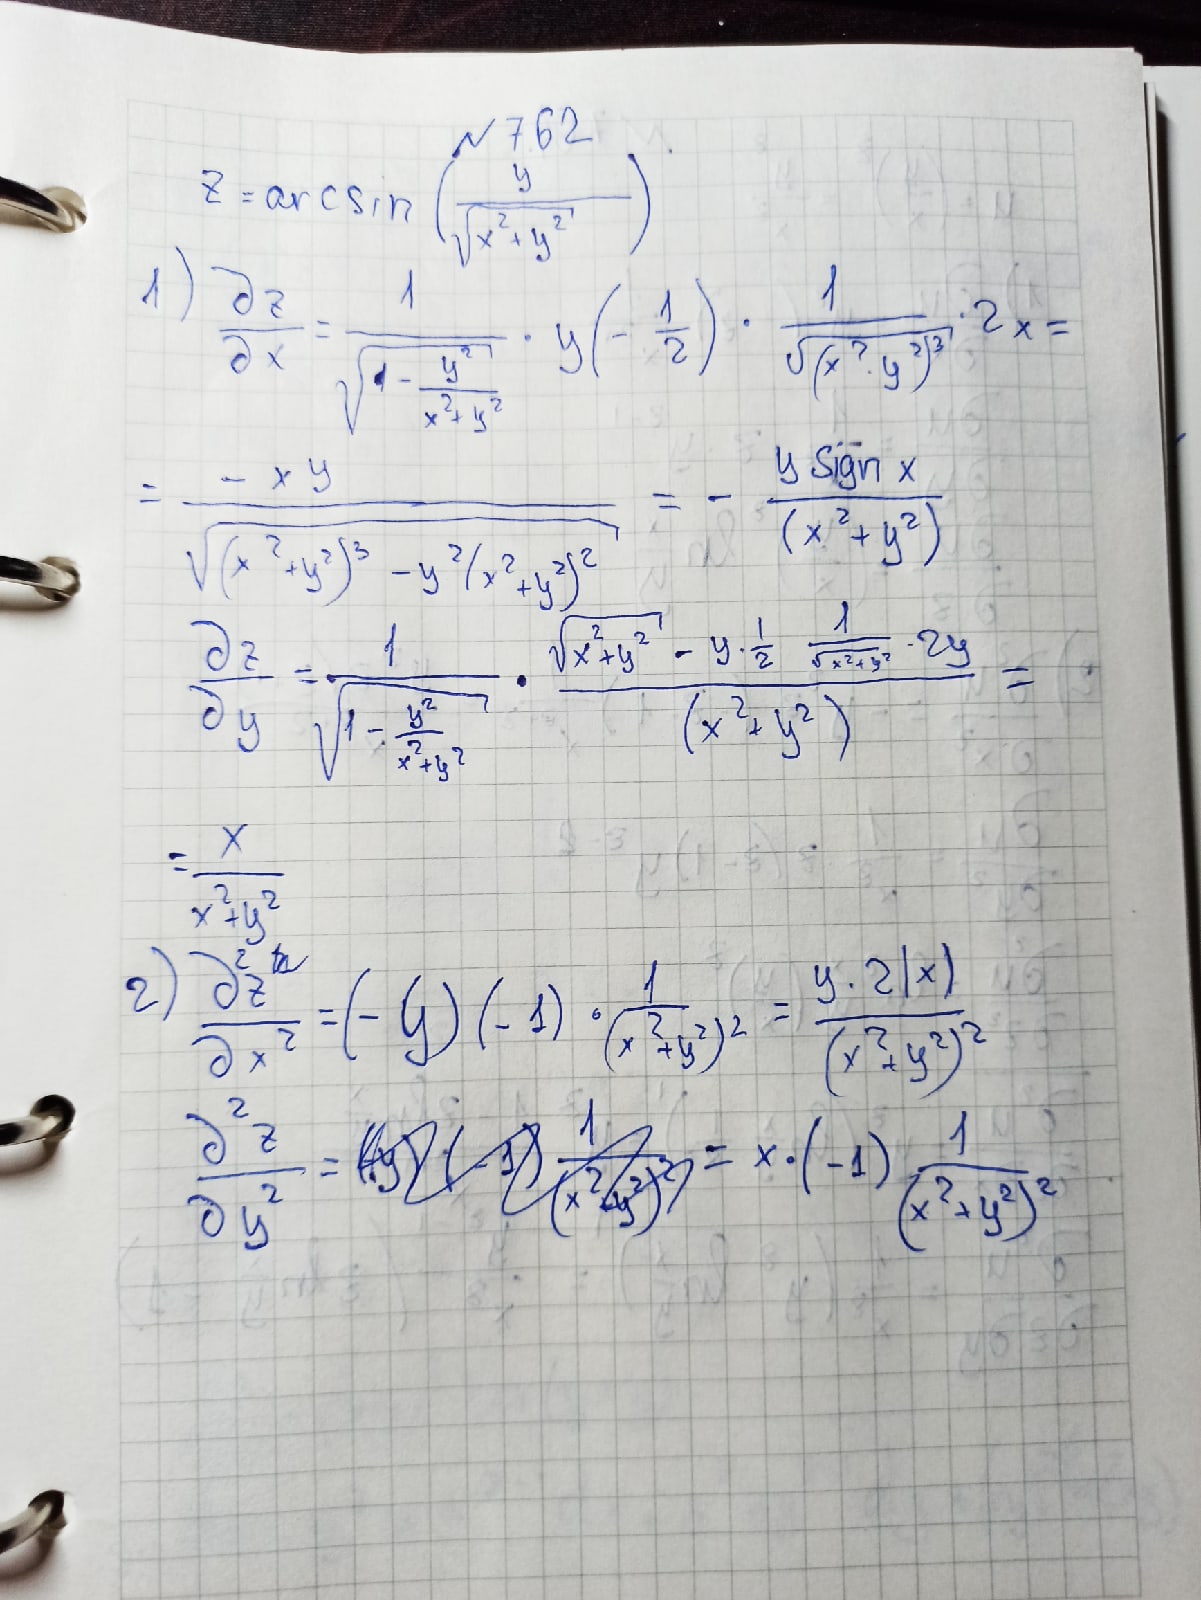 №762
z = arcsin (y / √(x²+y²))
1) ∂z/∂x = 1/√(1 - y²/(x²+y²)) · y(-1/2) · 1/√(x²·y²)³ · 2x =
= -xy/√((x²+y²)³ - y²(x²+y²)²) = - y sign x/(x²+y²)
∂z/∂y = 1/√(1 - y²/(x²+y²)) · (√(x²+y²) - y·1/2 1/√(x²+y²) · 2y)/(x²+y²) =
= x/(x²+y²)
2) ∂²z/∂x² = (-y)(-1) · 1/(x²+y²)² = y·2|x|/(x²+y²)²
∂²z/∂y² = = x·(-1) 1/(x²+y²)²